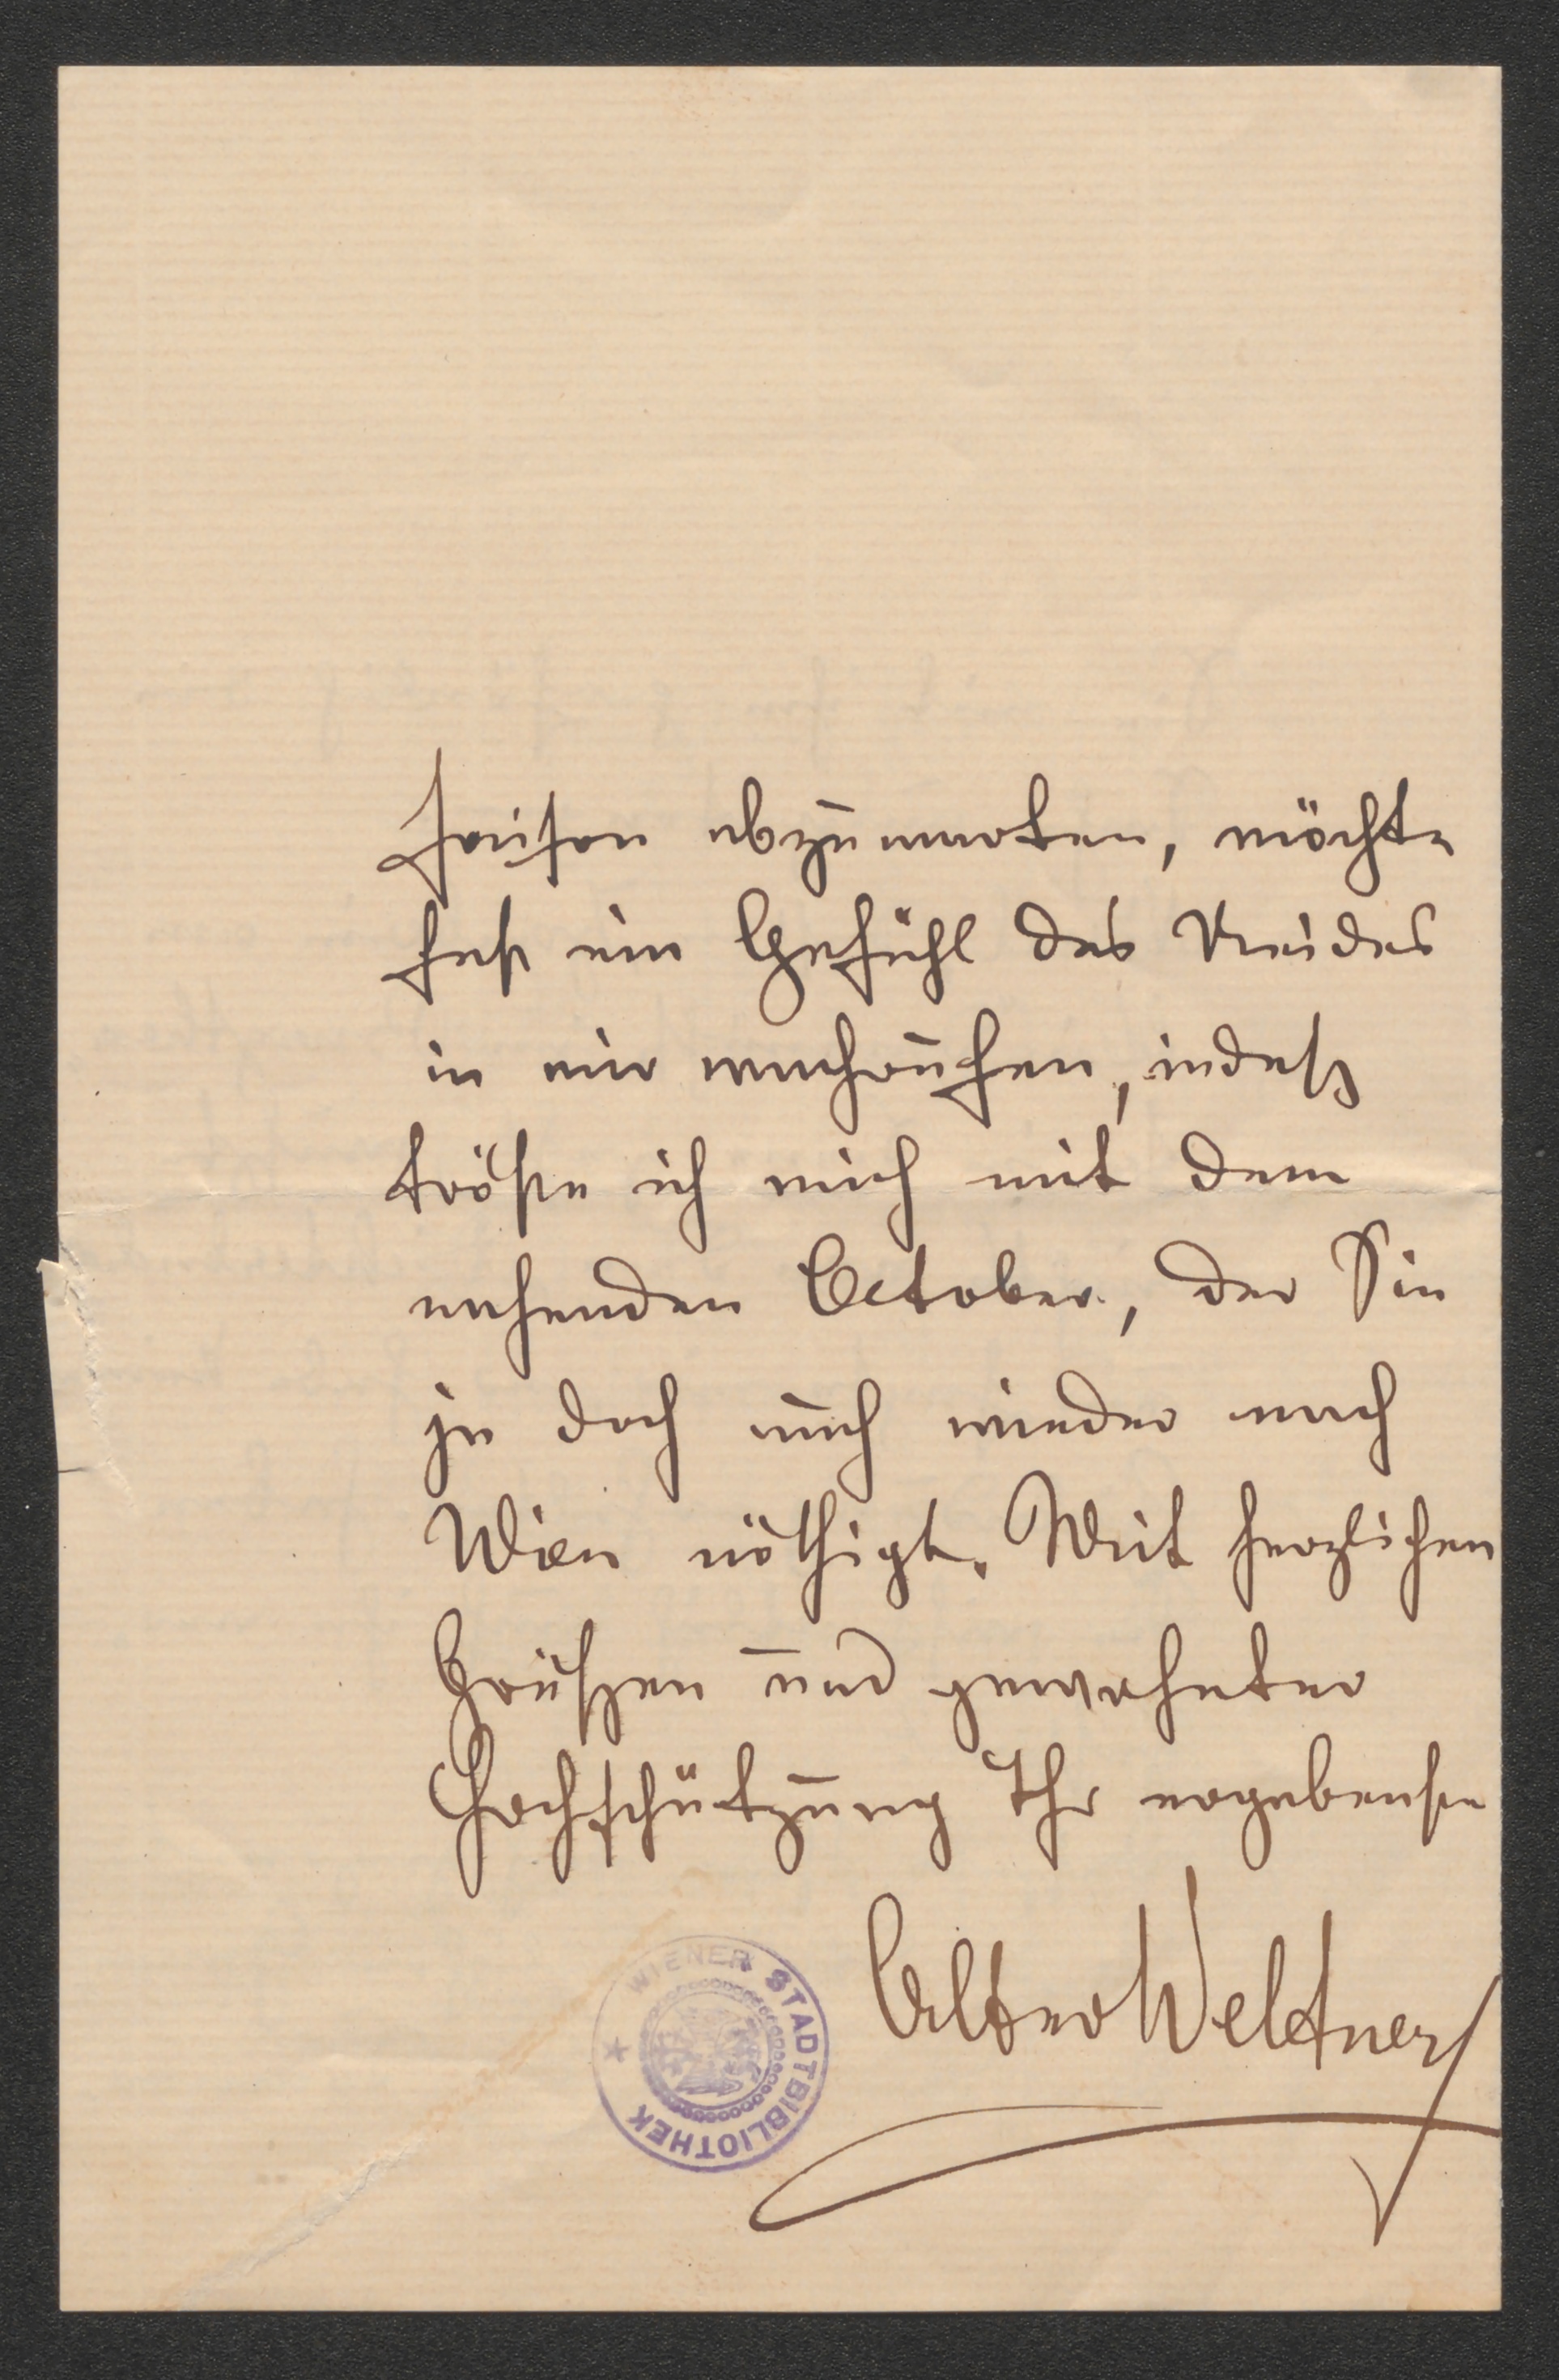 abzuwarten, möchte
fast ein Gefühl des Neides
in mir wachrufen, indeß
tröste ich mich mit dem
nahenden October, der Sie
ja doch auch wieder nach
Wien nöthigt. Mit herzlichen
Grüßen und gewohnter
Hochschätzung Ihr ergebenste
Alter Weltner
WIENER STADTBIBLIOTHEK